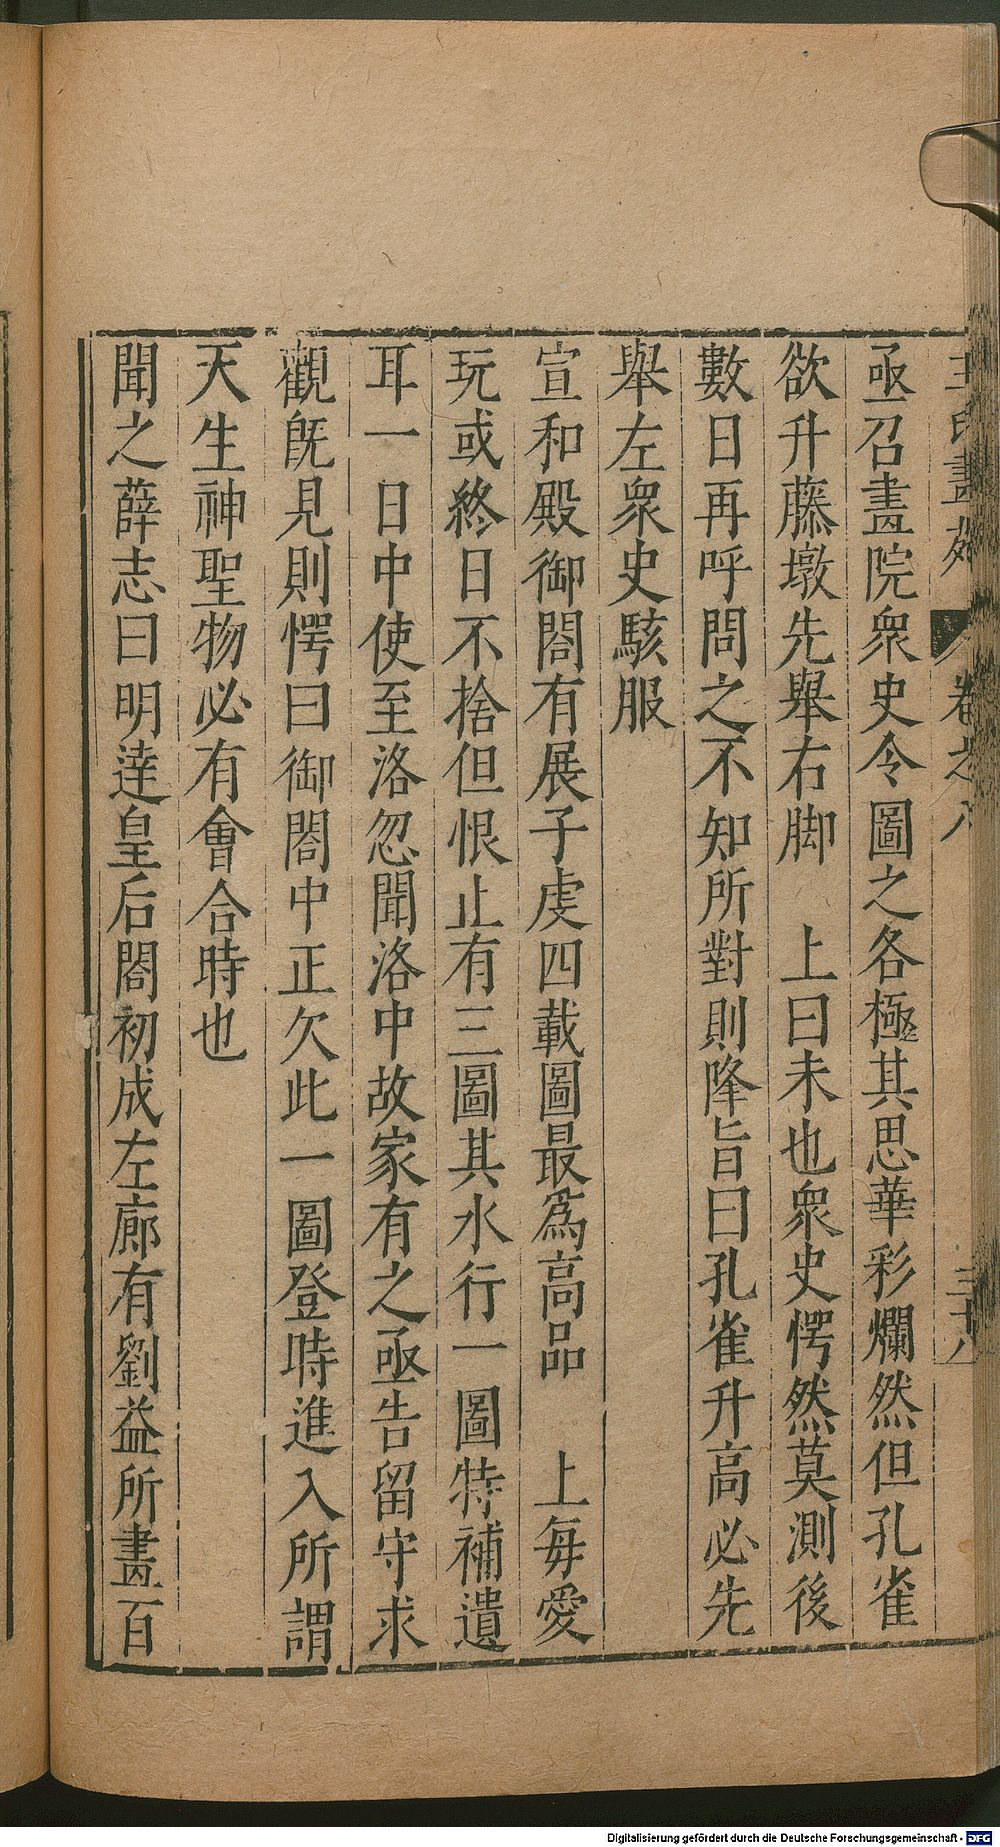 王氏畫苑 卷之八 三十八
亟召畫院衆史令圖之各極其思華彩爛然但孔雀
欲升藤墩先舉右脚 上曰未也衆史愕然莫測後
數日再呼問之不知所對則降旨曰孔雀升高必先
舉左衆史駭服
宣和殿御閤有展子虔四載圖最爲高品 上每愛
玩或終日不捨但恨止有三圖其水行一圖特補遺
耳一日中使至洛忽聞洛中故家有之亟告留守求
觀旣見則愕曰御閤中正欠此一圖登時進入所謂
天生神聖物必有會合時也
聞之薛志曰明達皇后閤初成左廊有劉益所畫百
Digitalisierung gefördert durch die Deutsche Forschungsgemeinschaft - DFG